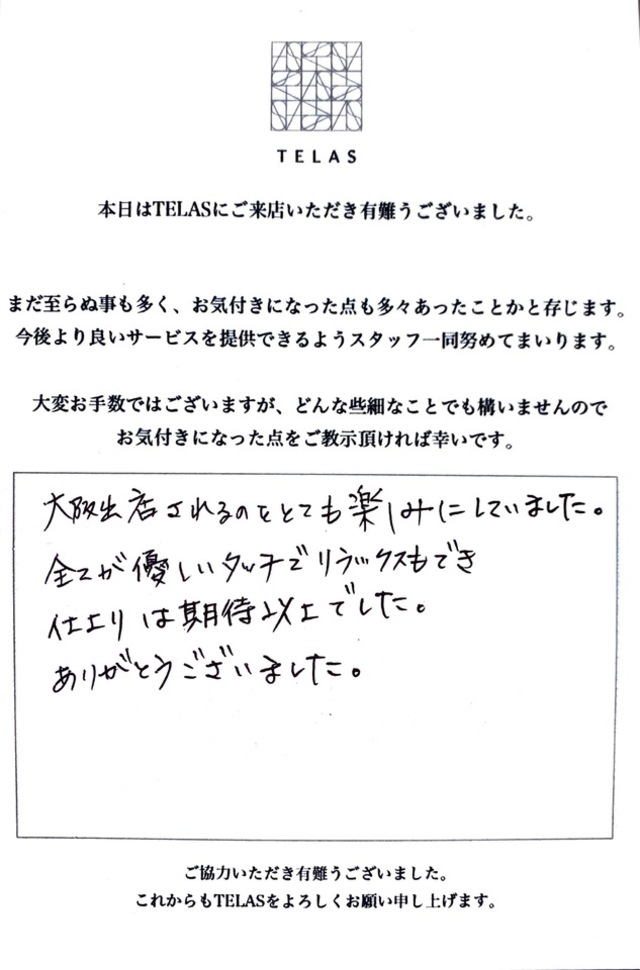 TELAS
本日はTELASにご来店いただき有難うございました。
まだ至らぬ事も多く、お気付きになった点も多々あったことかと存じます。
今後より良いサービスを提供できるようスタッフ一同努めてまいります。
大変お手数ではございますが、どんな些細なことでも構いませんので
お気付きになった点をご教示頂ければ幸いです。
大阪出店されるのをとても楽しみにしていました。
全てが優しいタッチでリラックスもでき
仕上りは期待以上でした。
ありがとうございました。
ご協力いただき有難うございました。
これからもTELASをよろしくお願い申し上げます。